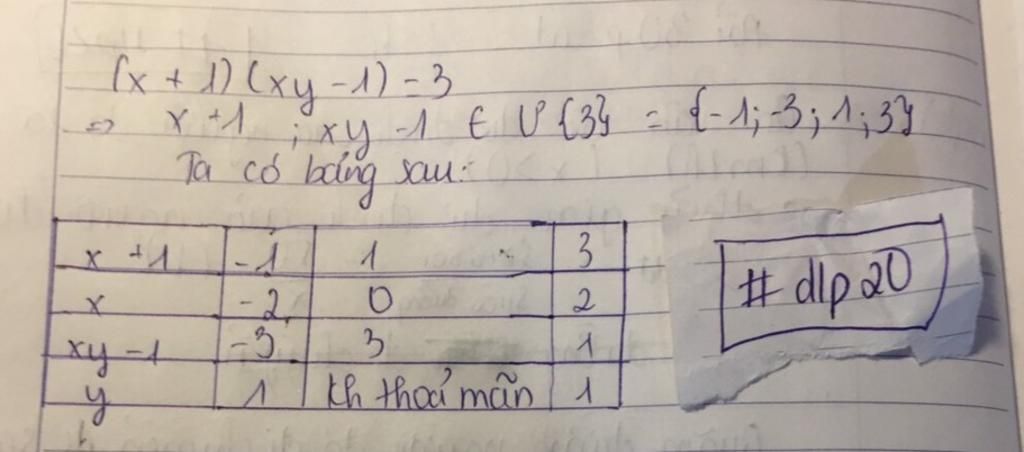 (x + 1) (xy - 1) = 3
=> x + 1 ; xy - 1 ∈ Ư {3} = {-1; -3; 1; 3}
Ta có bảng sau:
x + 1 -1 1 3
x -2 0 2
xy - 1 -3 3 1
y 1 Kh thoả mãn 1
# dlp20